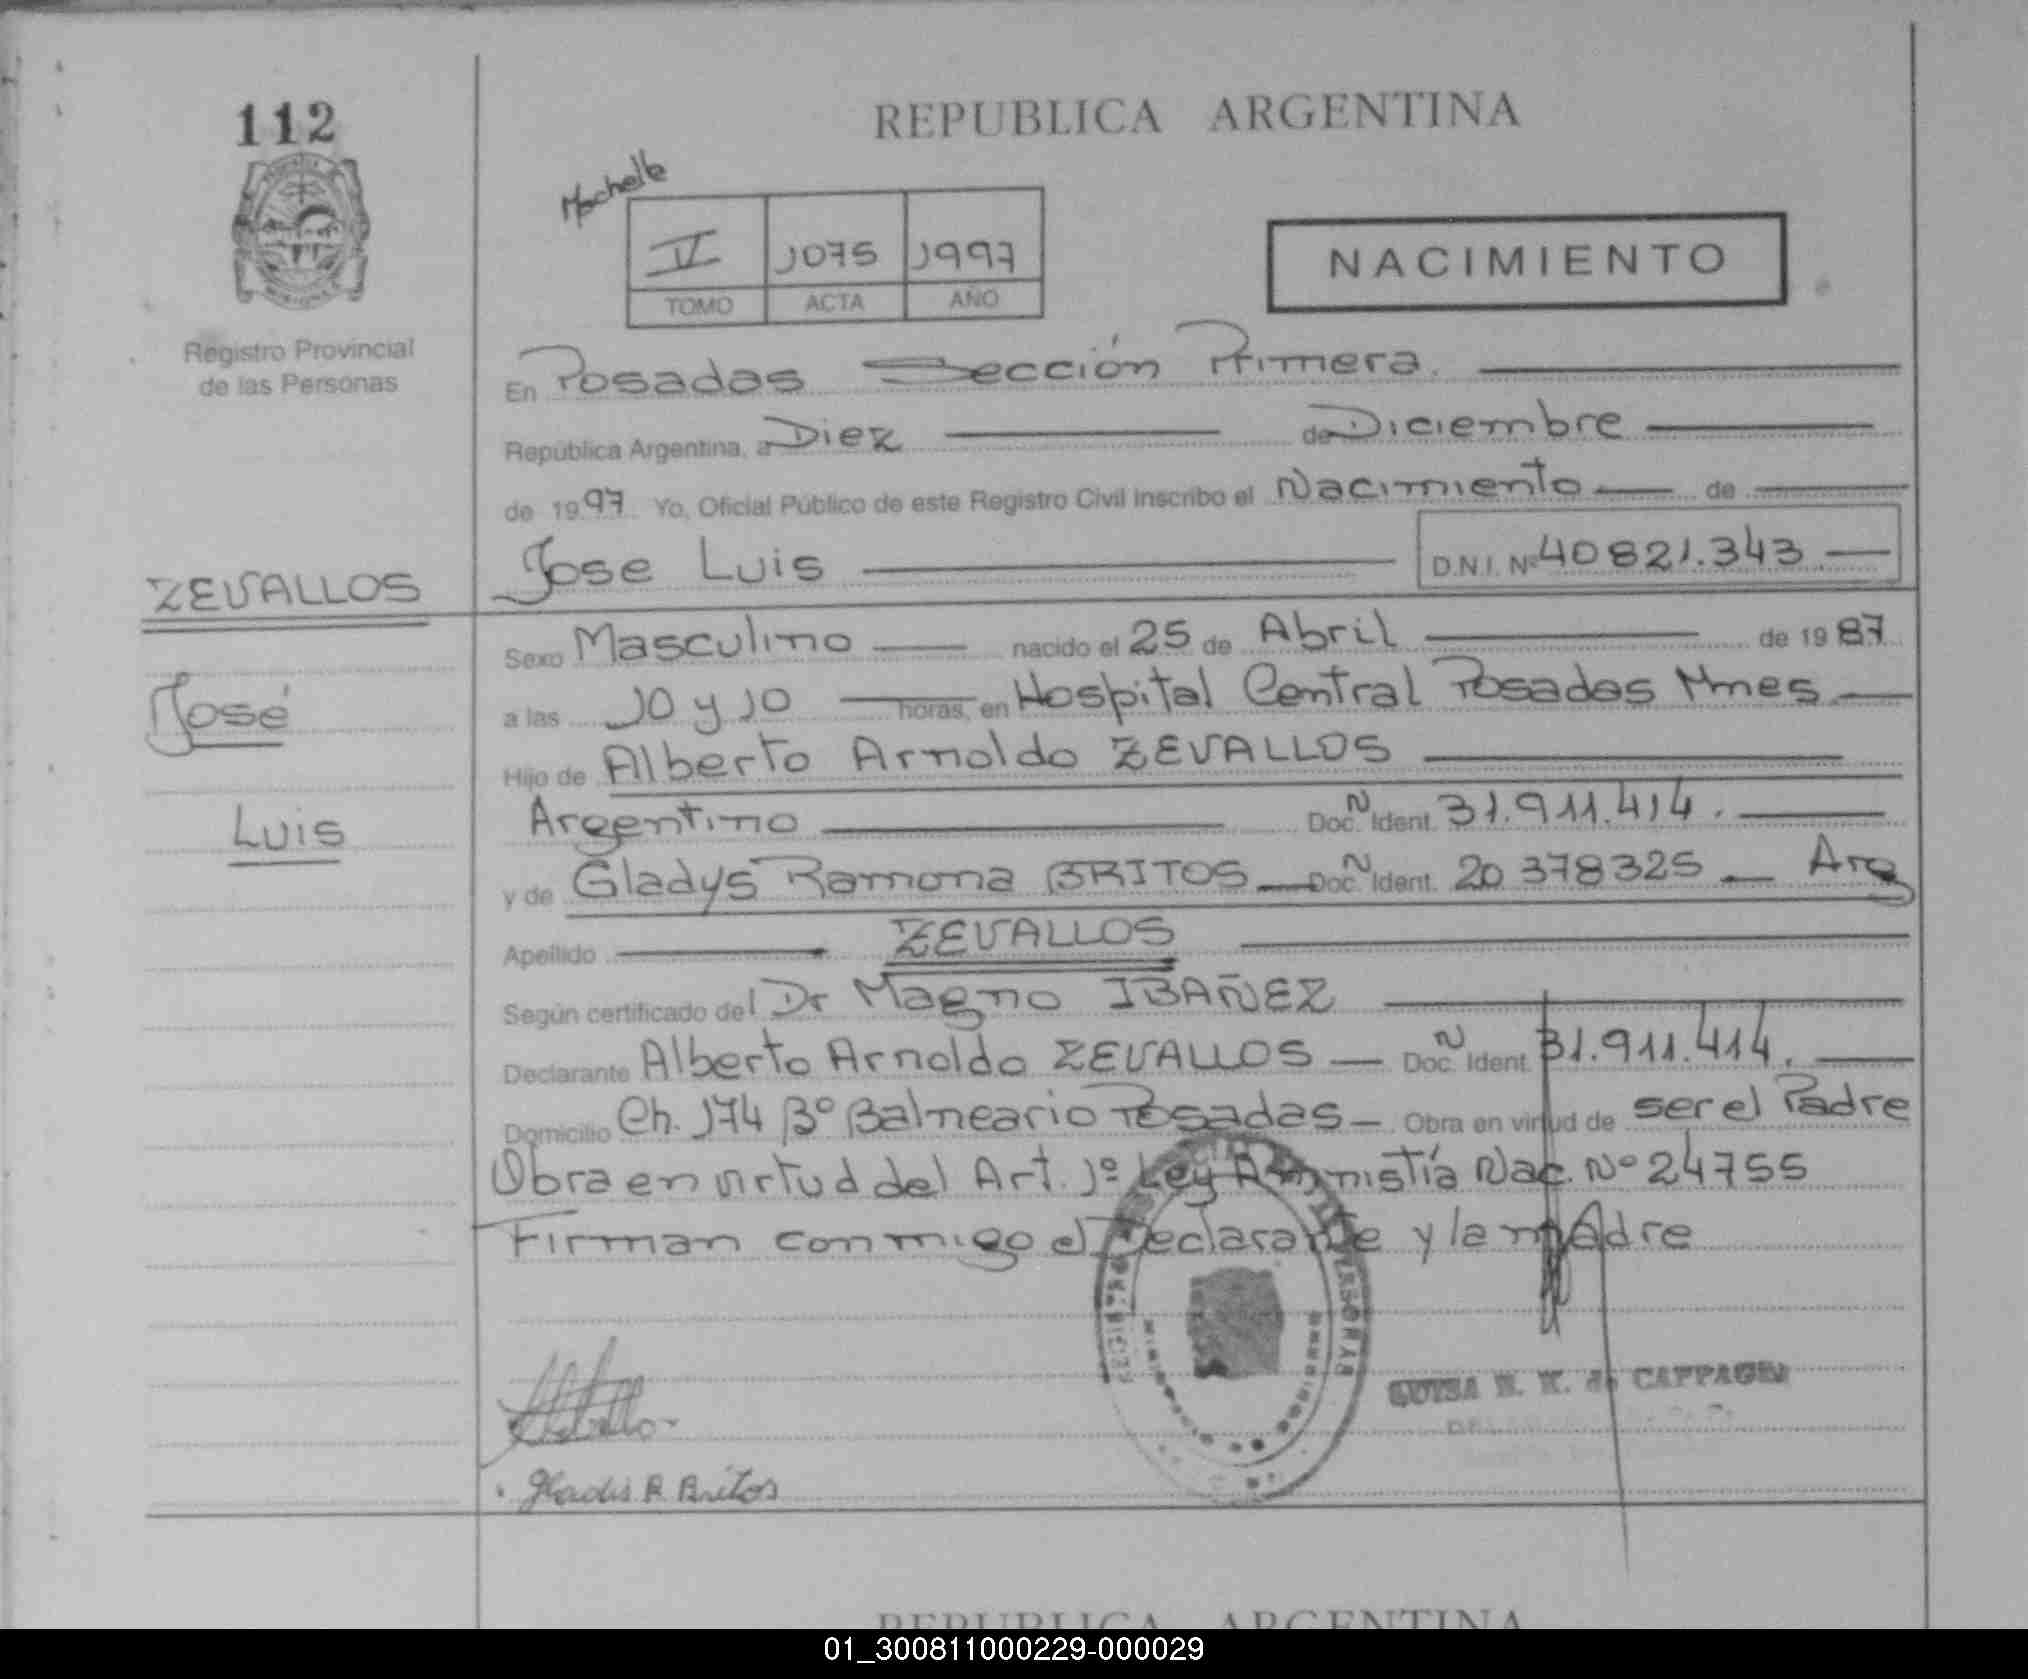 112
REPUBLICA ARGENTINA
IV 1075 1997
TOMO ACTA AÑO
NACIMIENTO
Registro Provincial
de las Personas
En Posadas Sección Primera.
República Argentina, a Diez de Diciembre
de 1997 Yo, Oficial Público de este Registro Civil inscribo el Nacimiento de
Jose Luis D.N.I. Nº 40821.343
ZEVALLOS
José
Luis
Sexo Masculino nacido el 25 de Abril de 1987
a las 10 y 10 horas, en Hospital Central Posadas Mnes.
Hijo de Alberto Arnoldo ZEVALLOS
Argentino Doc. N Ident. 31.911.414.
y de Gladys Ramona BRITOS Doc. N Ident. 20 378325 Arg
Apellido ZEVALLOS
Según certificado del Dr Magno IBAÑEZ
Declarante Alberto Arnoldo ZEVALLOS Doc. N Ident. 31.911.414.
Domicilio Ch. 174 Bº Balneario Posadas Obra en virtud de ser el Padre
Obra en virtud del Art. 1º Ley Amnistía Nac. Nº 24755
Firman conmigo el Declarante y la madre
LUISA de CAPPAGLI
Gladis R Britos
REPUBLICA ARGENTINA
01_300811000229-000029